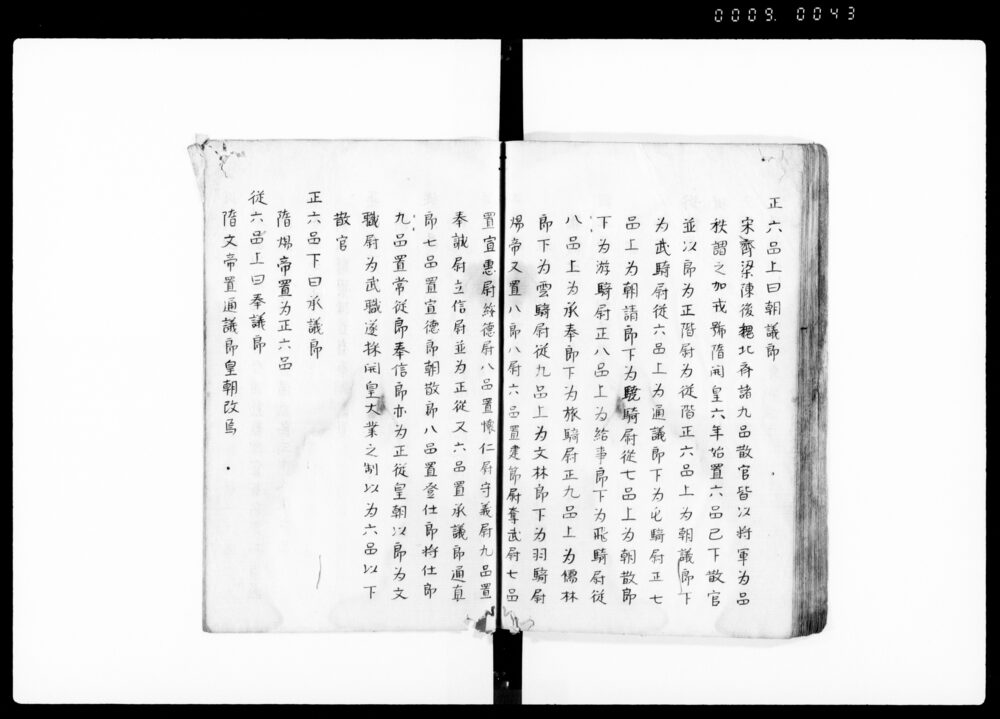 0009. 0043
正六品上曰朝議郎
宋齊梁陳後魏北齊諸九品散官皆以將軍為品
秩謂之加戎號隋開皇六年始置六品已下散官
並以郎為正階尉為從階正六品上為朝議郎下
為武騎尉從六品上為通議郎下為屯騎尉正七
品上為朝請郎下為驍騎尉從七品上為朝散郎
下為游騎尉正八品上為給事郎下為飛騎尉從
八品上為承奉郎下為旅騎尉正九品上為儒林
郎下為雲騎尉從九品上為文林郎下為羽騎尉
煬帝又置八郎八尉六品置建節尉奮武尉七品
置宣惠尉綏德尉八品置懷仁尉守義尉九品置
奉誠尉立信尉並為正從又六品置承議郎通直
郎七品置宣德郎朝散郎八品置登仕郎將仕郎
九品置常從郎奉信郎亦為正從皇朝以郎為文
職尉為武職遂採開皇大業之制以為六品以下
散官
正六品下曰承議郎
隋煬帝置為正六品
從六品上曰奉議郎
隋文帝置通議郎皇朝改焉